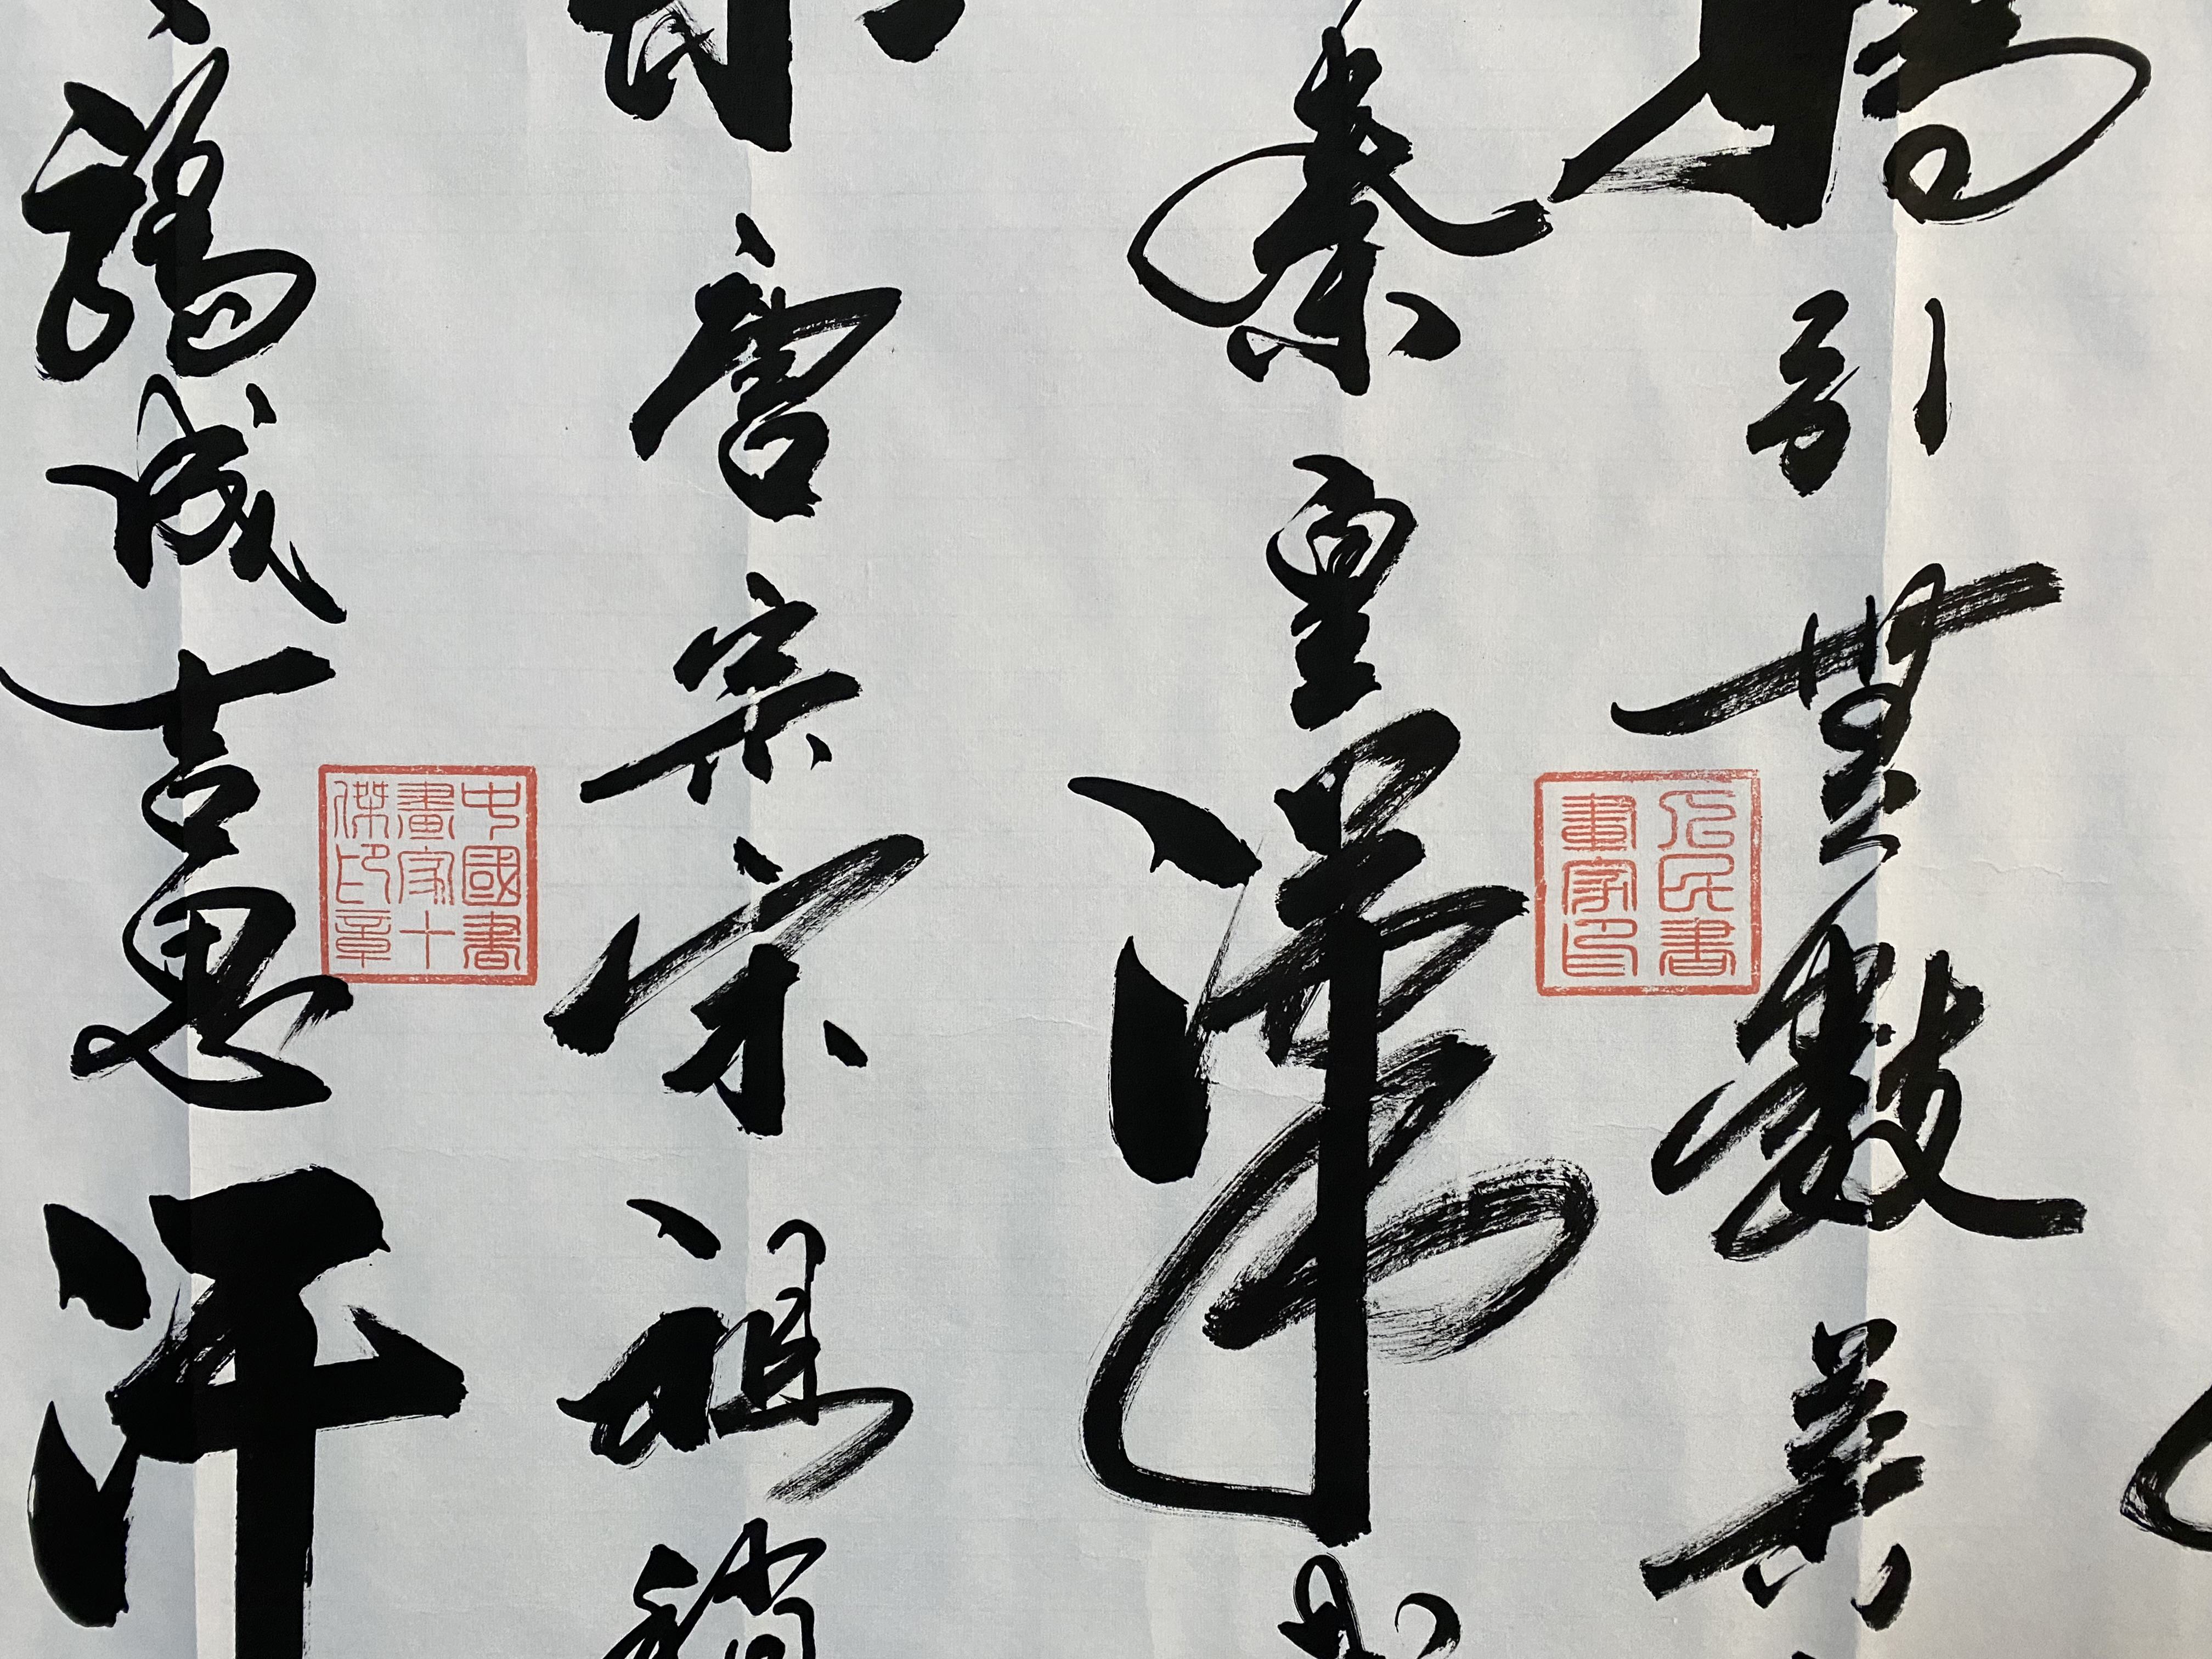 嬌引無數英
公民書
畫家印
秦皇漢武
唐宗宋祖稍
中國書
畫家十
傑印章
驕成吉思汗